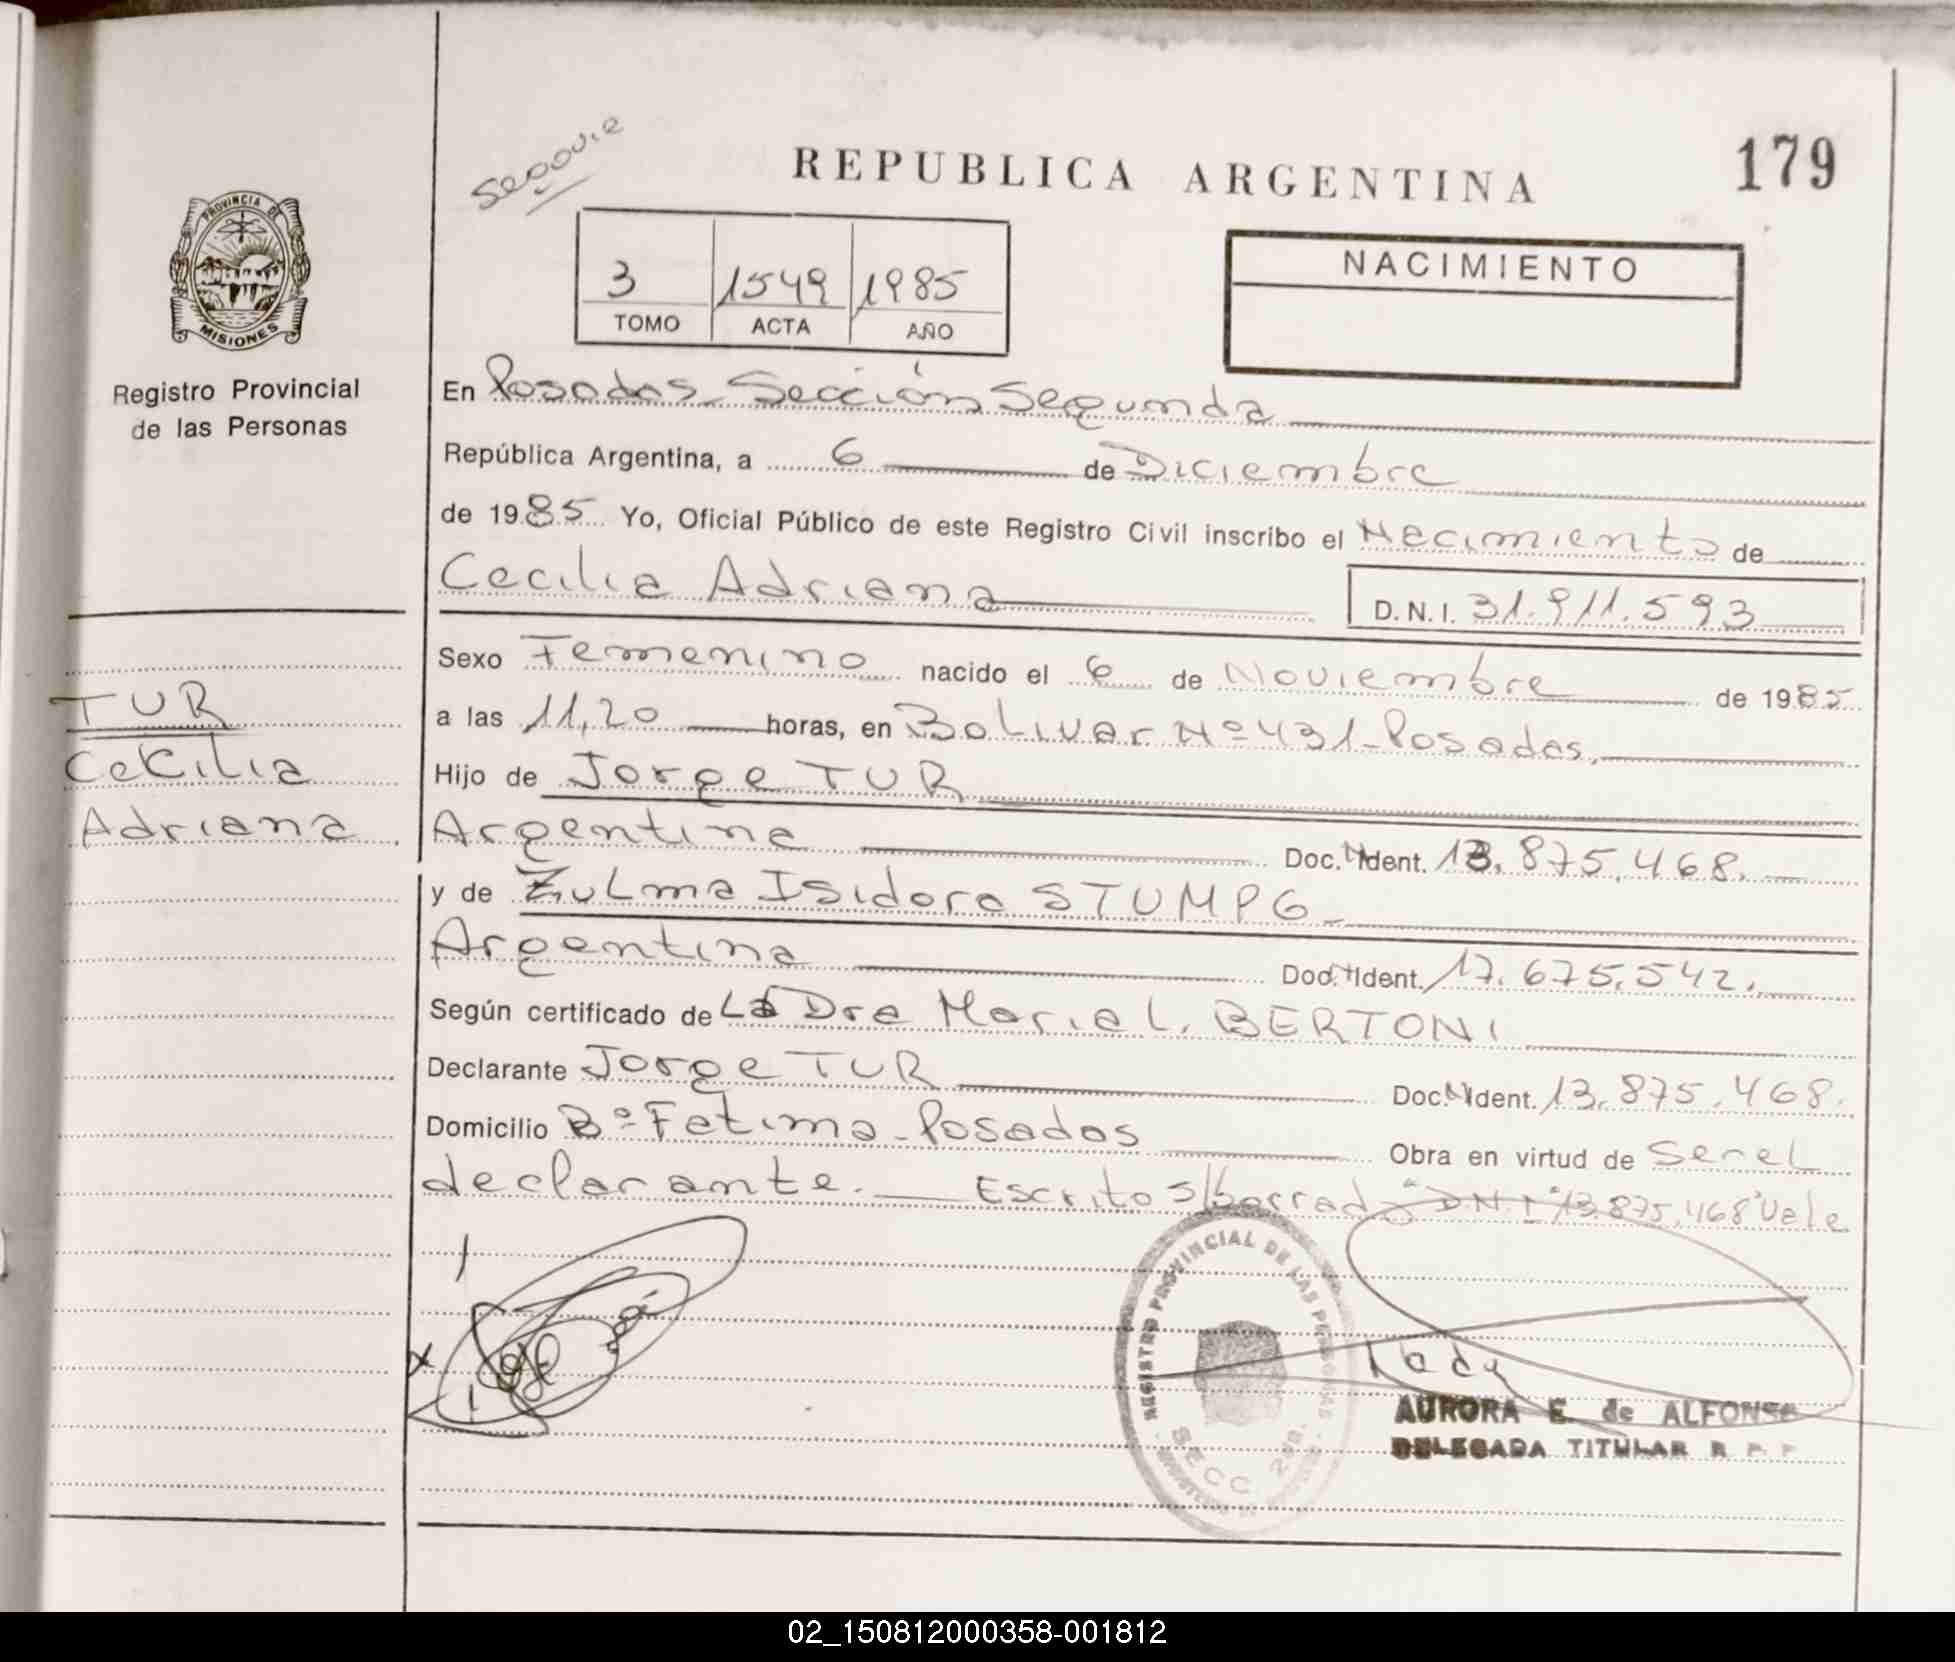 Segovie
REPUBLICA ARGENTINA
179
PROVINCIA DE
MISIONES
3 1549 1985
TOMO ACTA AÑO
NACIMIENTO
Registro Provincial
de las Personas
En Posadas - Sección Segunda
República Argentina, a 6 de Diciembre
de 1985 Yo, Oficial Público de este Registro Civil inscribo el Nacimiento de
Cecilia Adriana D.N.I. 31.911.593
Sexo Femenino nacido el 6 de Noviembre de 1985
a las 11,20 horas, en Bolivar Nº 431 - Posadas,
Hijo de Jorge TUR
Argentina Doc. Ident. 13.875.468.
y de Zulma Isidora STUMPG
Argentina Doc. Ident. 17.675.542.
Según certificado de La Dra Mariel. BERTONI
Declarante Jorge TUR Doc. Ident. 13.875.468.
Domicilio Bº Fatima - Posadas Obra en virtud de Ser el
declarante. Escrito s/borrado "D.N.I" 13.875.468" Vale
TUR
Cecilia
Adriana
REGISTRO PROVINCIAL DE LAS PERSONAS
SECC 2da.
AURORA E. de ALFONSO
DELEGADA TITULAR R P P
02_150812000358-001812